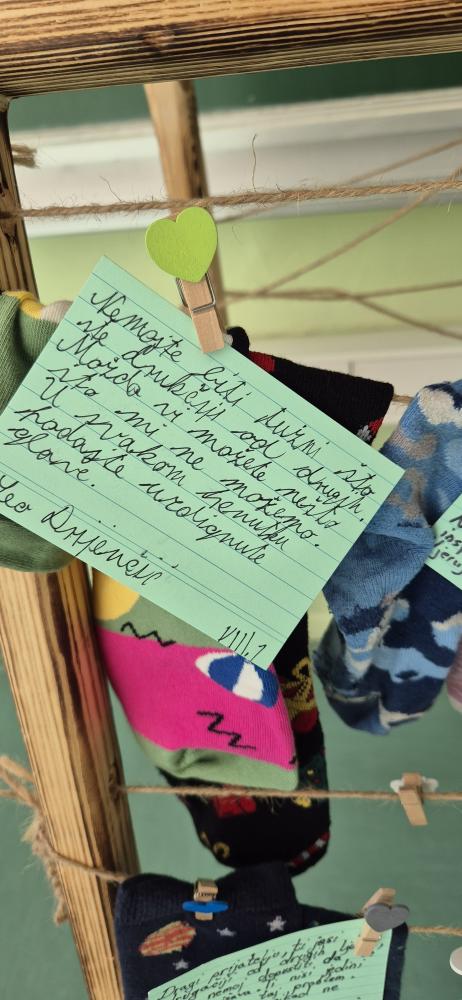 Nemojte biti tužni što
ste drukčiji od drugih.
Možda vi možete nešto
što mi ne možemo.
U svakom trenutku
hodajte uzdignute
glave.
Leo Drjenčić
VIII.1
Dragi prijatelju, ti jesi
drugačiji od drugih
nemoj dopustiti da
nisi jedini
problem.
ne